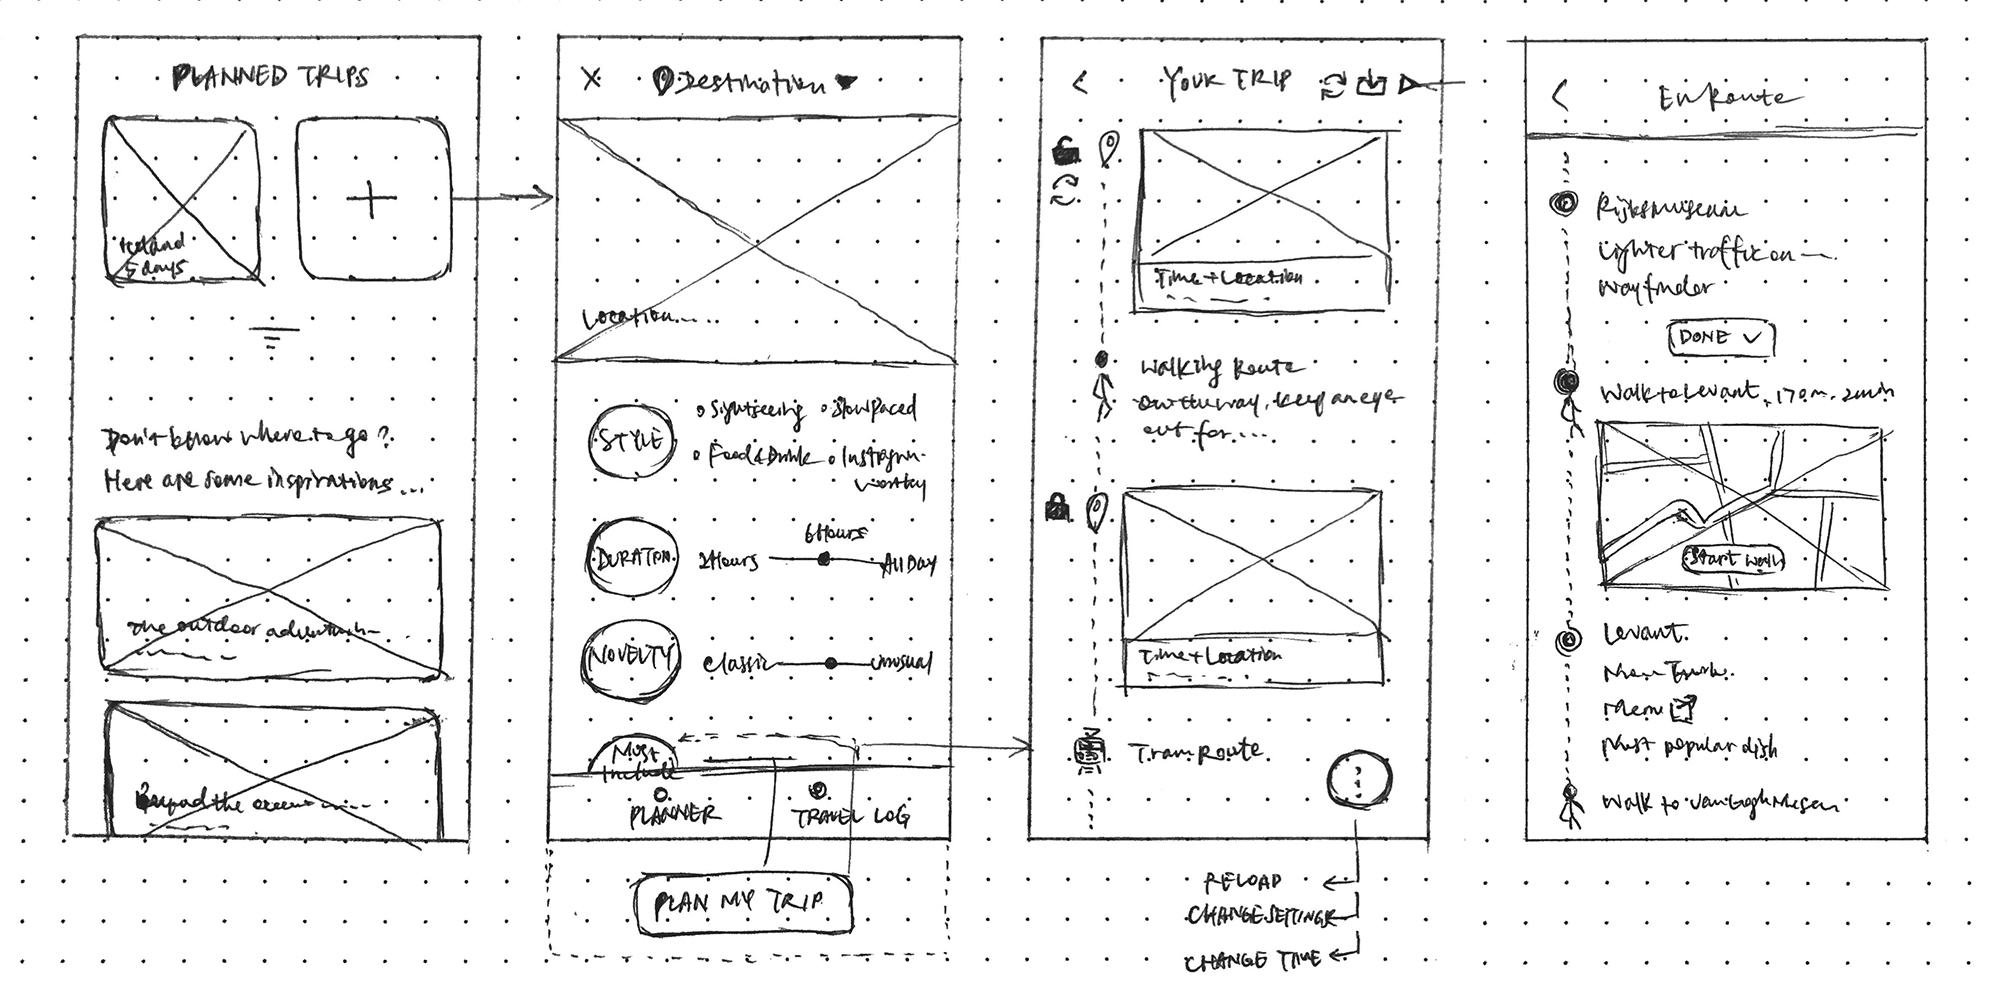 PLANNED TRIPS
Iceland
5 days
Don't know where to go?
Here are some inspirations...
The outdoor
the
X
Destination
Location.....
STYLE
Sightseeing
Slow Paced
Food & Drink
Instagram-
worthy
DURATION
2 Hours
6 Hours
All Day
NOVELTY
Classic
Unusual
Must
Include
PLANNER
TRAVEL LOG
PLAN MY TRIP
YOUR TRIP
Time + Location
Walking Route
On the way, keep an eye
out for....
Time + Location
Tram Route
RELOAD
CHANGE SETTINGS
CHANGE TIME
En Route
Rijksmuseum
Lighter traffic on
Wayfinder
DONE
Walk to Levant, 170m, 2min
Start Walk
Levant
Menu
Most popular dish
Walk to Van Gogh Museum